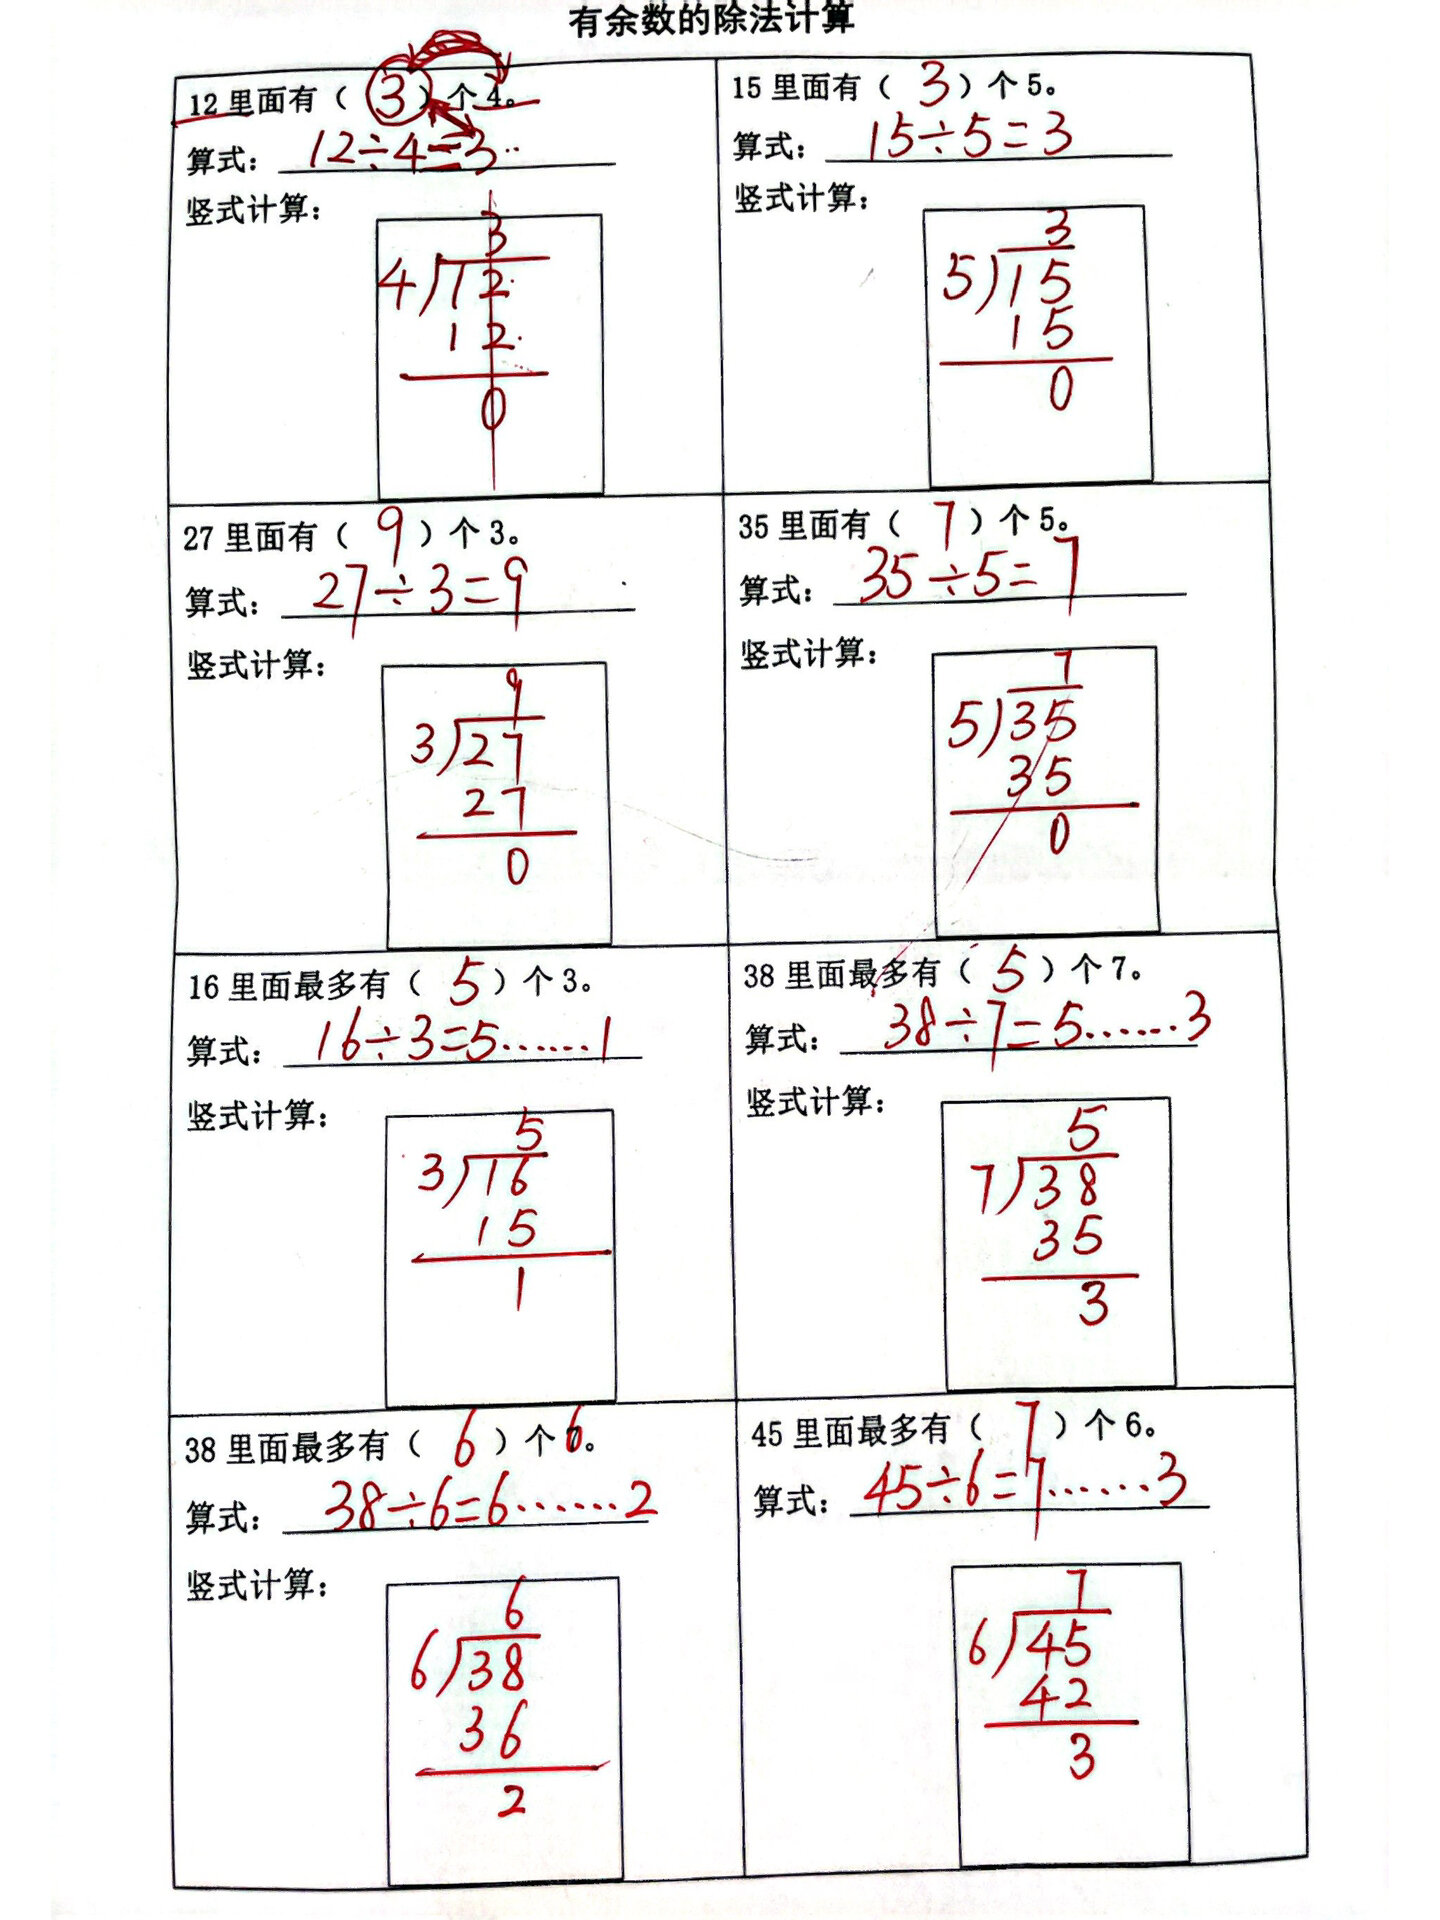 有余数的除法计算
12里面有（ 3 ）个4。
算式：12÷4=3··
竖式计算：
3
4)12
12
0
15里面有（ 3 ）个5。
算式：15÷5=3
竖式计算：
3
5)15
15
0
27里面有（ 9 ）个3。
算式：27÷3=9
竖式计算：
9
3)27
27
0
35里面有（ 7 ）个5。
算式：35÷5=7
竖式计算：
7
5)35
35
0
16里面最多有（ 5 ）个3。
算式：16÷3=5……1
竖式计算：
5
3)16
15
1
38里面最多有（ 5 ）个7。
算式：38÷7=5……3
竖式计算：
5
7)38
35
3
38里面最多有（ 6 ）个6。
算式：38÷6=6……2
竖式计算：
6
6)38
36
2
45里面最多有（ 7 ）个6。
算式：45÷6=7……3
7
6)45
42
3